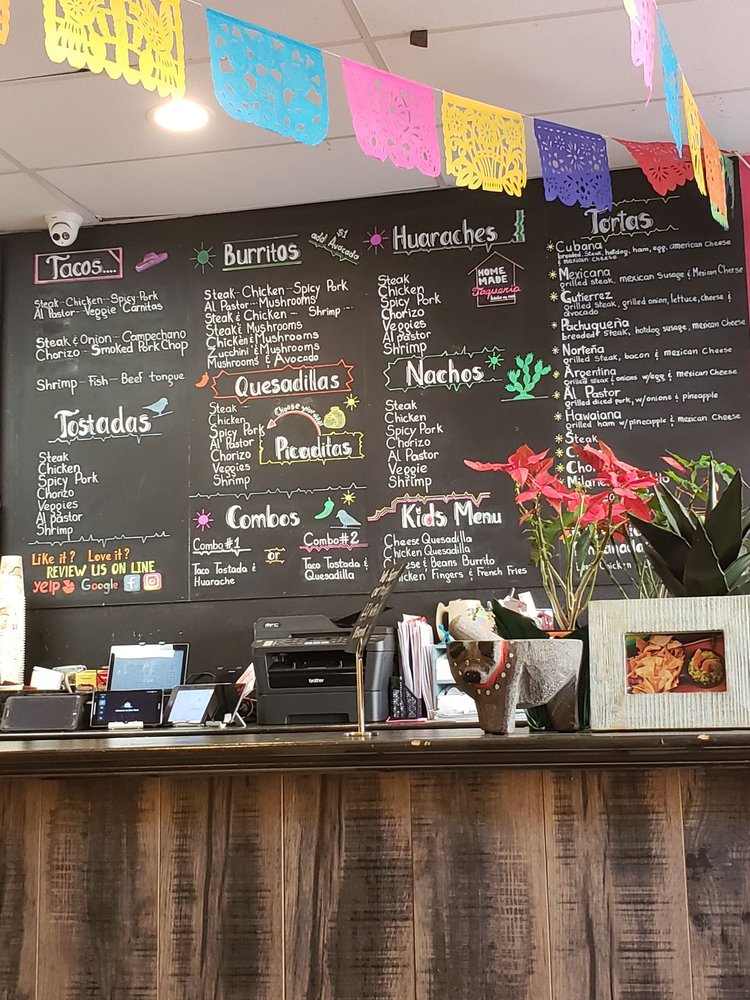 Tacos....
Steak - Chicken - Spicy Pork
Al Pastor - Veggie Carnitas
Steak & Onion - Campechano
Chorizo - Smoked Pork Chop
Shrimp - Fish - Beef tongue
Tostadas
Steak
Chicken
Spicy Pork
Chorizo
Veggies
Al pastor
Shrimp
Like it? Love it?
REVIEW US ON LINE
yelp Google f
Burritos
$1
add Avocado
Steak - Chicken - Spicy Pork
Al Pastor - Mushrooms
Steak & Chicken - Shrimp
Steak & Mushrooms
Chicken & Mushrooms
Zucchini & Mushrooms
Mushrooms & Avocado
Quesadillas
Steak
Chicken
Spicy Pork
Al Pastor
Chorizo
Veggies
Shrimp
Choose yours
Picaditas
Combos
Combo #1
Taco Tostada &
Huarache
or
Combo #2
Taco Tostada &
Quesadilla
Huaraches
Steak
Chicken
Spicy Pork
Chorizo
Veggies
Al pastor
Shrimp
HOME
MADE
Taqueria
Nachos
Steak
Chicken
Spicy Pork
Chorizo
Al Pastor
Veggie
Shrimp
Kids Menu
Cheese Quesadilla
Chicken Quesadilla
Cheese & Beans Burrito
Chicken Fingers & French Fries
Tortas
Cubana
breaded Steak, hotdog, ham, egg, american Cheese
& mexican cheese
Mexicana
grilled steak, mexican Sunage & Mexican Cheese
Gutierrez
grilled Steak, grilled onion, lettuce, cheese &
avocado
Pachuqueña
breaded Steak, hotdog sunage, mexican Cheese
Norteña
Grilled Steak, bacon & mexican Cheese
Argentina
Grilled Steak & onions w/egg & mexican Cheese
Al Pastor
grilled diced pork, w/onions & pineapple
Hawaiana
grilled ham w/pineapple & mexican Cheese
Steak
brother